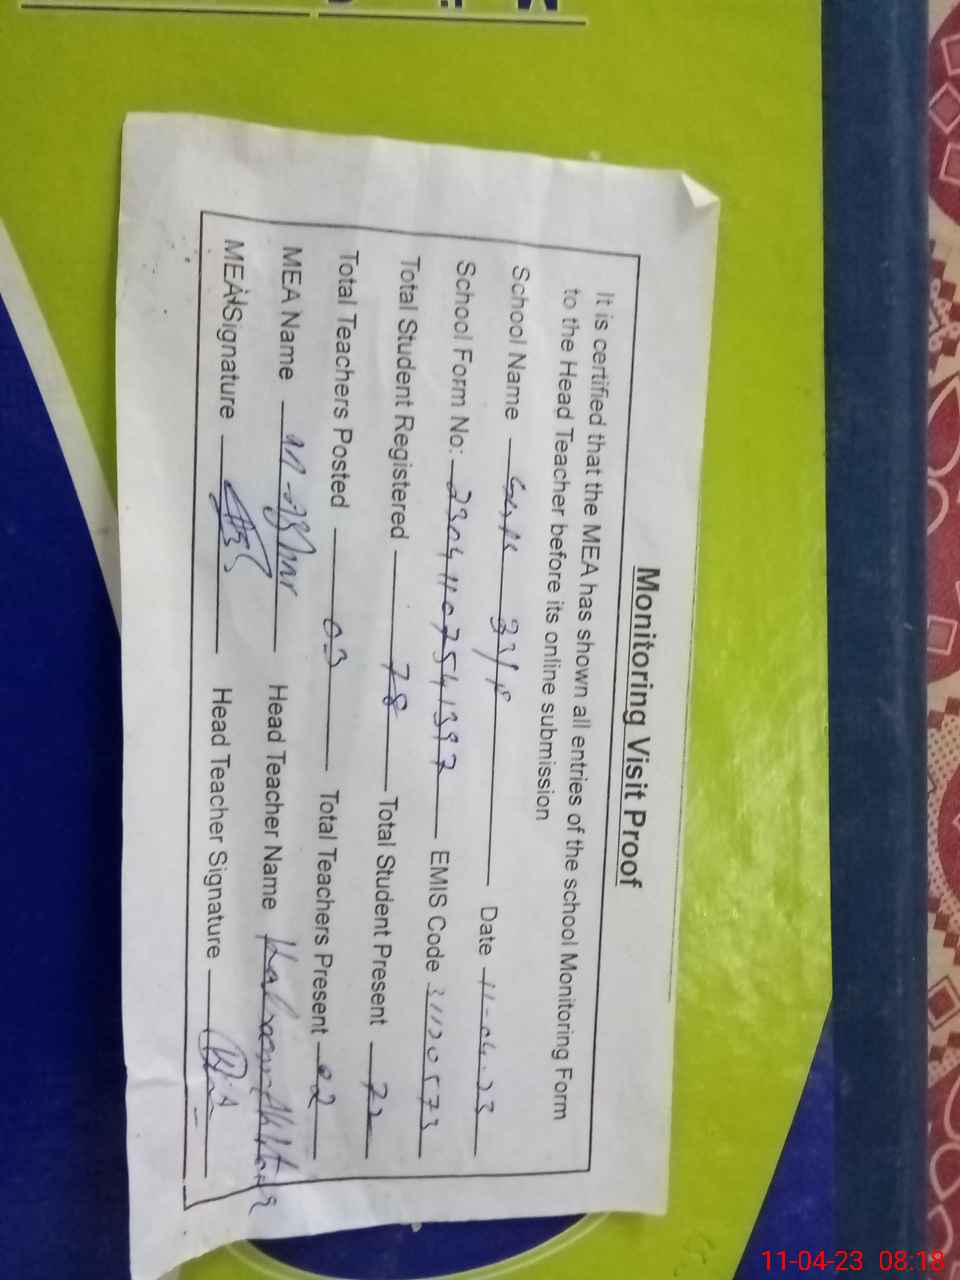 Monitoring Visit Proof
It is certified that the MEA has shown all entries of the school Monitoring Form
to the Head Teacher before its online submission
School Name 33/P Date 11-04-23
School Form No: 23041107541397 EMIS Code 31120573
Total Student Registered 78 Total Student Present 72
Total Teachers Posted 03 Total Teachers Present 02
MEA Name Head Teacher Name
MEA Signature Head Teacher Signature
11-04-23 08:18